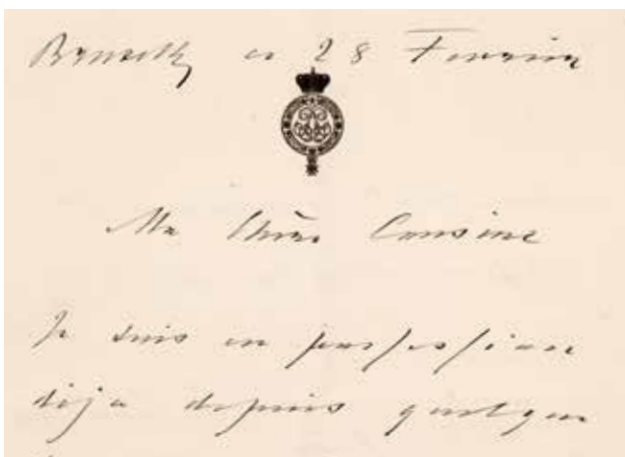 Bruxelles ce 28 Fevrier
Ma Chère Cousine
Je suis en possession
déja depuis quelque